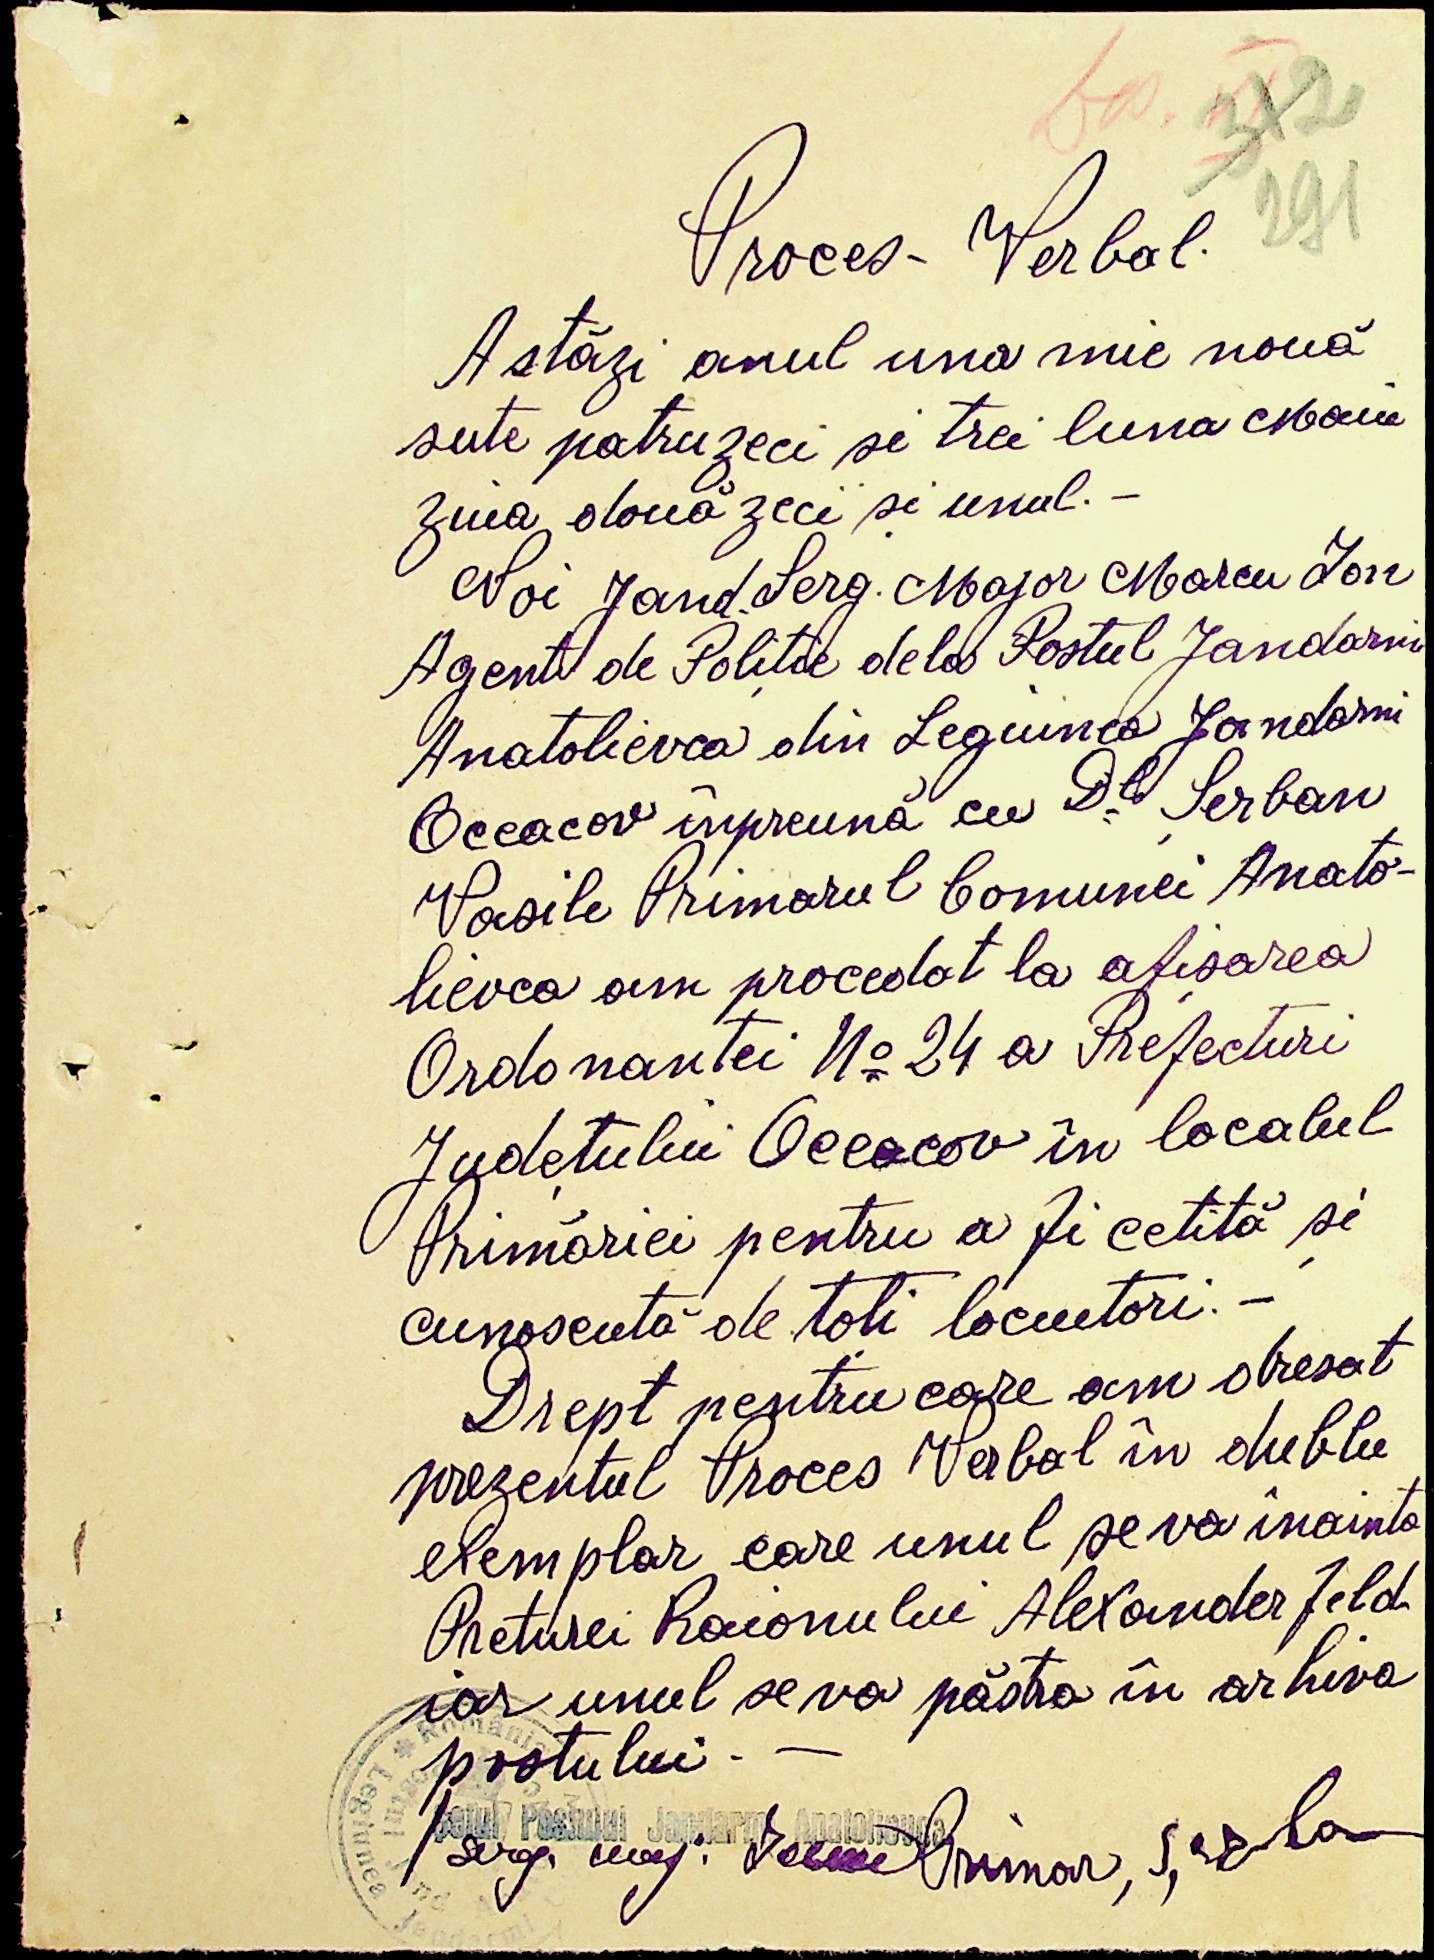 372
291
Proces-Verbal.
Astăzi anul una mie nouă
sute patruzeci si trei luna Maiu
ziua două zeci si unul. -
Noi Jand. Serg. Major Marcu Ion
Agent de Poliție dela Postul Jandarmi
Anatolievca din Legiunea Jandarmi
Oceacov înpreună cu Dl. Șerban
Vasile Primarul Comunei Anato-
lievca am procedat la afișarea
Ordonantei No 24 a Prefecturi
Județului Oceacov în localul
Primăriei pentru a fi cetită și
cunoscută de toți locuitori. -
Drept pentru care am dresat
prezentul Proces Verbal în dublu
exemplar care unul se va înainta
Preturei Raionului Alexanderfeld
iar unul se va păstra în arhiva
postului. -
Șeful Postului Jandarmi Anatolievca
Serg. maj. Primar, Șerba
România
Legiunea Jandarmi